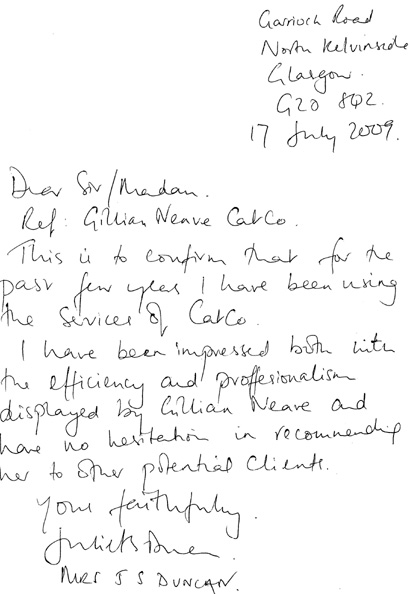 Garrioch Road
North Kelvinside
Glasgow.
G20 8QZ.
17 July 2009.
Dear Sir/Madam.
Ref: Gillian Neave CatCo.
This is to confirm that for the
past few years I have been using
the services of CatCo.
I have been impressed both with
the efficiency and proffesionalism
displayed by Gillian Neave and
have no hesitation in recommending
her to other potential clients.
Yours faithfully.
MRS J S DUNCAN.